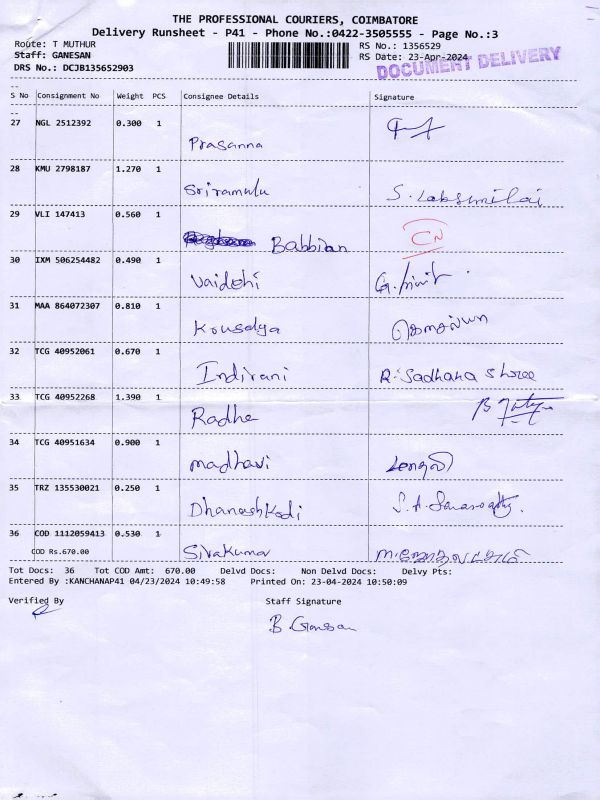 THE PROFESSIONAL COURIERS, COIMBATORE
Delivery Runsheet - P41 - Phone No.:0422-3505555 - Page No.:3
Route: T MUTHUR
Staff: GANESAN
DRS No.: DCJB135652903
RS No.: 1356529
RS Date: 23-Apr-2024
DOCUMENT DELIVERY
S No Consignment No Weight PCS Consignee Details Signature
27 NGL 2512392 0.300 1
Prasanna
28 KMU 2798187 1.270 1
Sriramulu
29 VLI 147413 0.560 1
Babbian CN
30 IXM 506254482 0.490 1
Vaidehi
31 MAA 864072307 0.810 1
Kousalya கௌசல்யா
32 TCG 40952061 0.670 1
Indirani R. Sadhana Shree
33 TCG 40952268 1.390 1
Radhe
34 TCG 40951634 0.900 1
madhavi
35 TRZ 135530021 0.250 1
Dhanashkodi S. A. Saraswathy.
36 COD 1112059413 0.530 1
COD Rs.670.00 Sivakumar
Tot Docs: 36 Tot COD Amt: 670.00 Delvd Docs: Non Delvd Docs: Delvy Pts:
Entered By :KANCHANAP41 04/23/2024 10:49:58 Printed On: 23-04-2024 10:50:09
Verified By Staff Signature
B. Ganesan